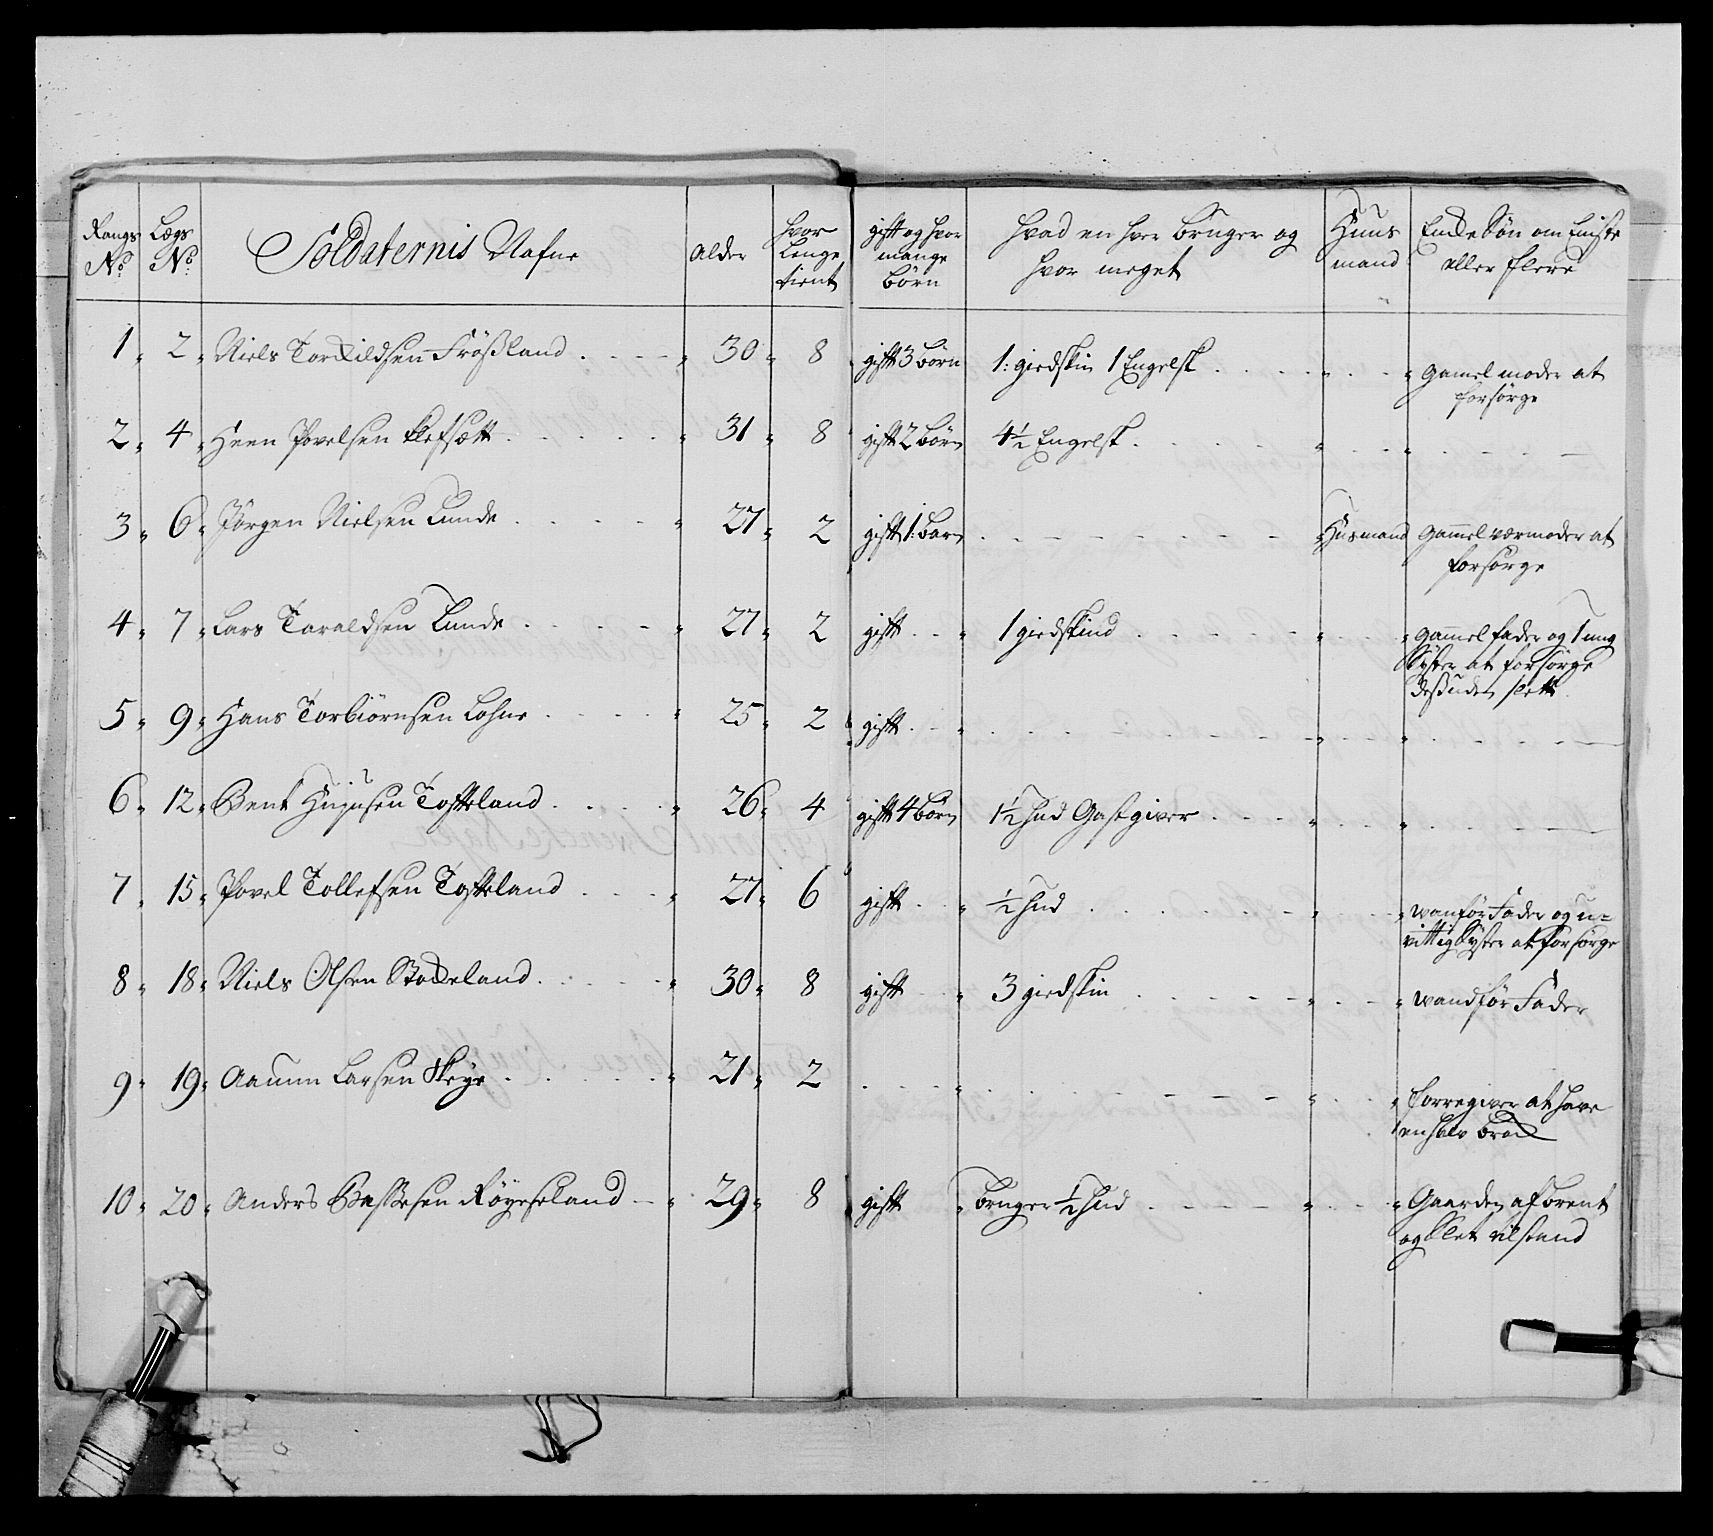 Rangs No. Lægs No. Soldaternis Nafne Alder hvor Lenge tient gift og hvor mange börn hvad en hver bruger og hvor meget Huusmand Eenste Sön om Eniste eller flere
1 2 Niels Torkildsen Frösland 30 8 gift 3 börn 1: giedskin 1 Engelsk gamel moder at forsörge
2 4 Povelsen 31 8 gift 2 börn 4½ Engelsk
3 6 Jörgen Nielsen Lunde 27 2 gift 1: barn Husmand gamel værmoder at forsörge
4 7 Lars Taraldsen Lunde 27 2 gift 1 giedskind gamel fader og 1 ung Syster at forsörge desuden slett
5 9 Hans Torbiörnsen Lohne 25 2 gift
6 12 Bent Tofteland 26 4 gift 4 börn 1½ hud Gastgiver
7 15 Povel Tollefsen Tofteland 27 6 gift ½ hud wanför Fader og u=
vittig Syster at forsörge
8 18 Niels Olsen Stokeland 30 8 gift 3 giedskin wandför Fader
9 19 Aanun Larsen Skeye 21 2 forregiver at have en halv brok
10 20 Anders Röyseland 29 8 gift bruger ½ hud Gaarden afbrent og Slet tilstand